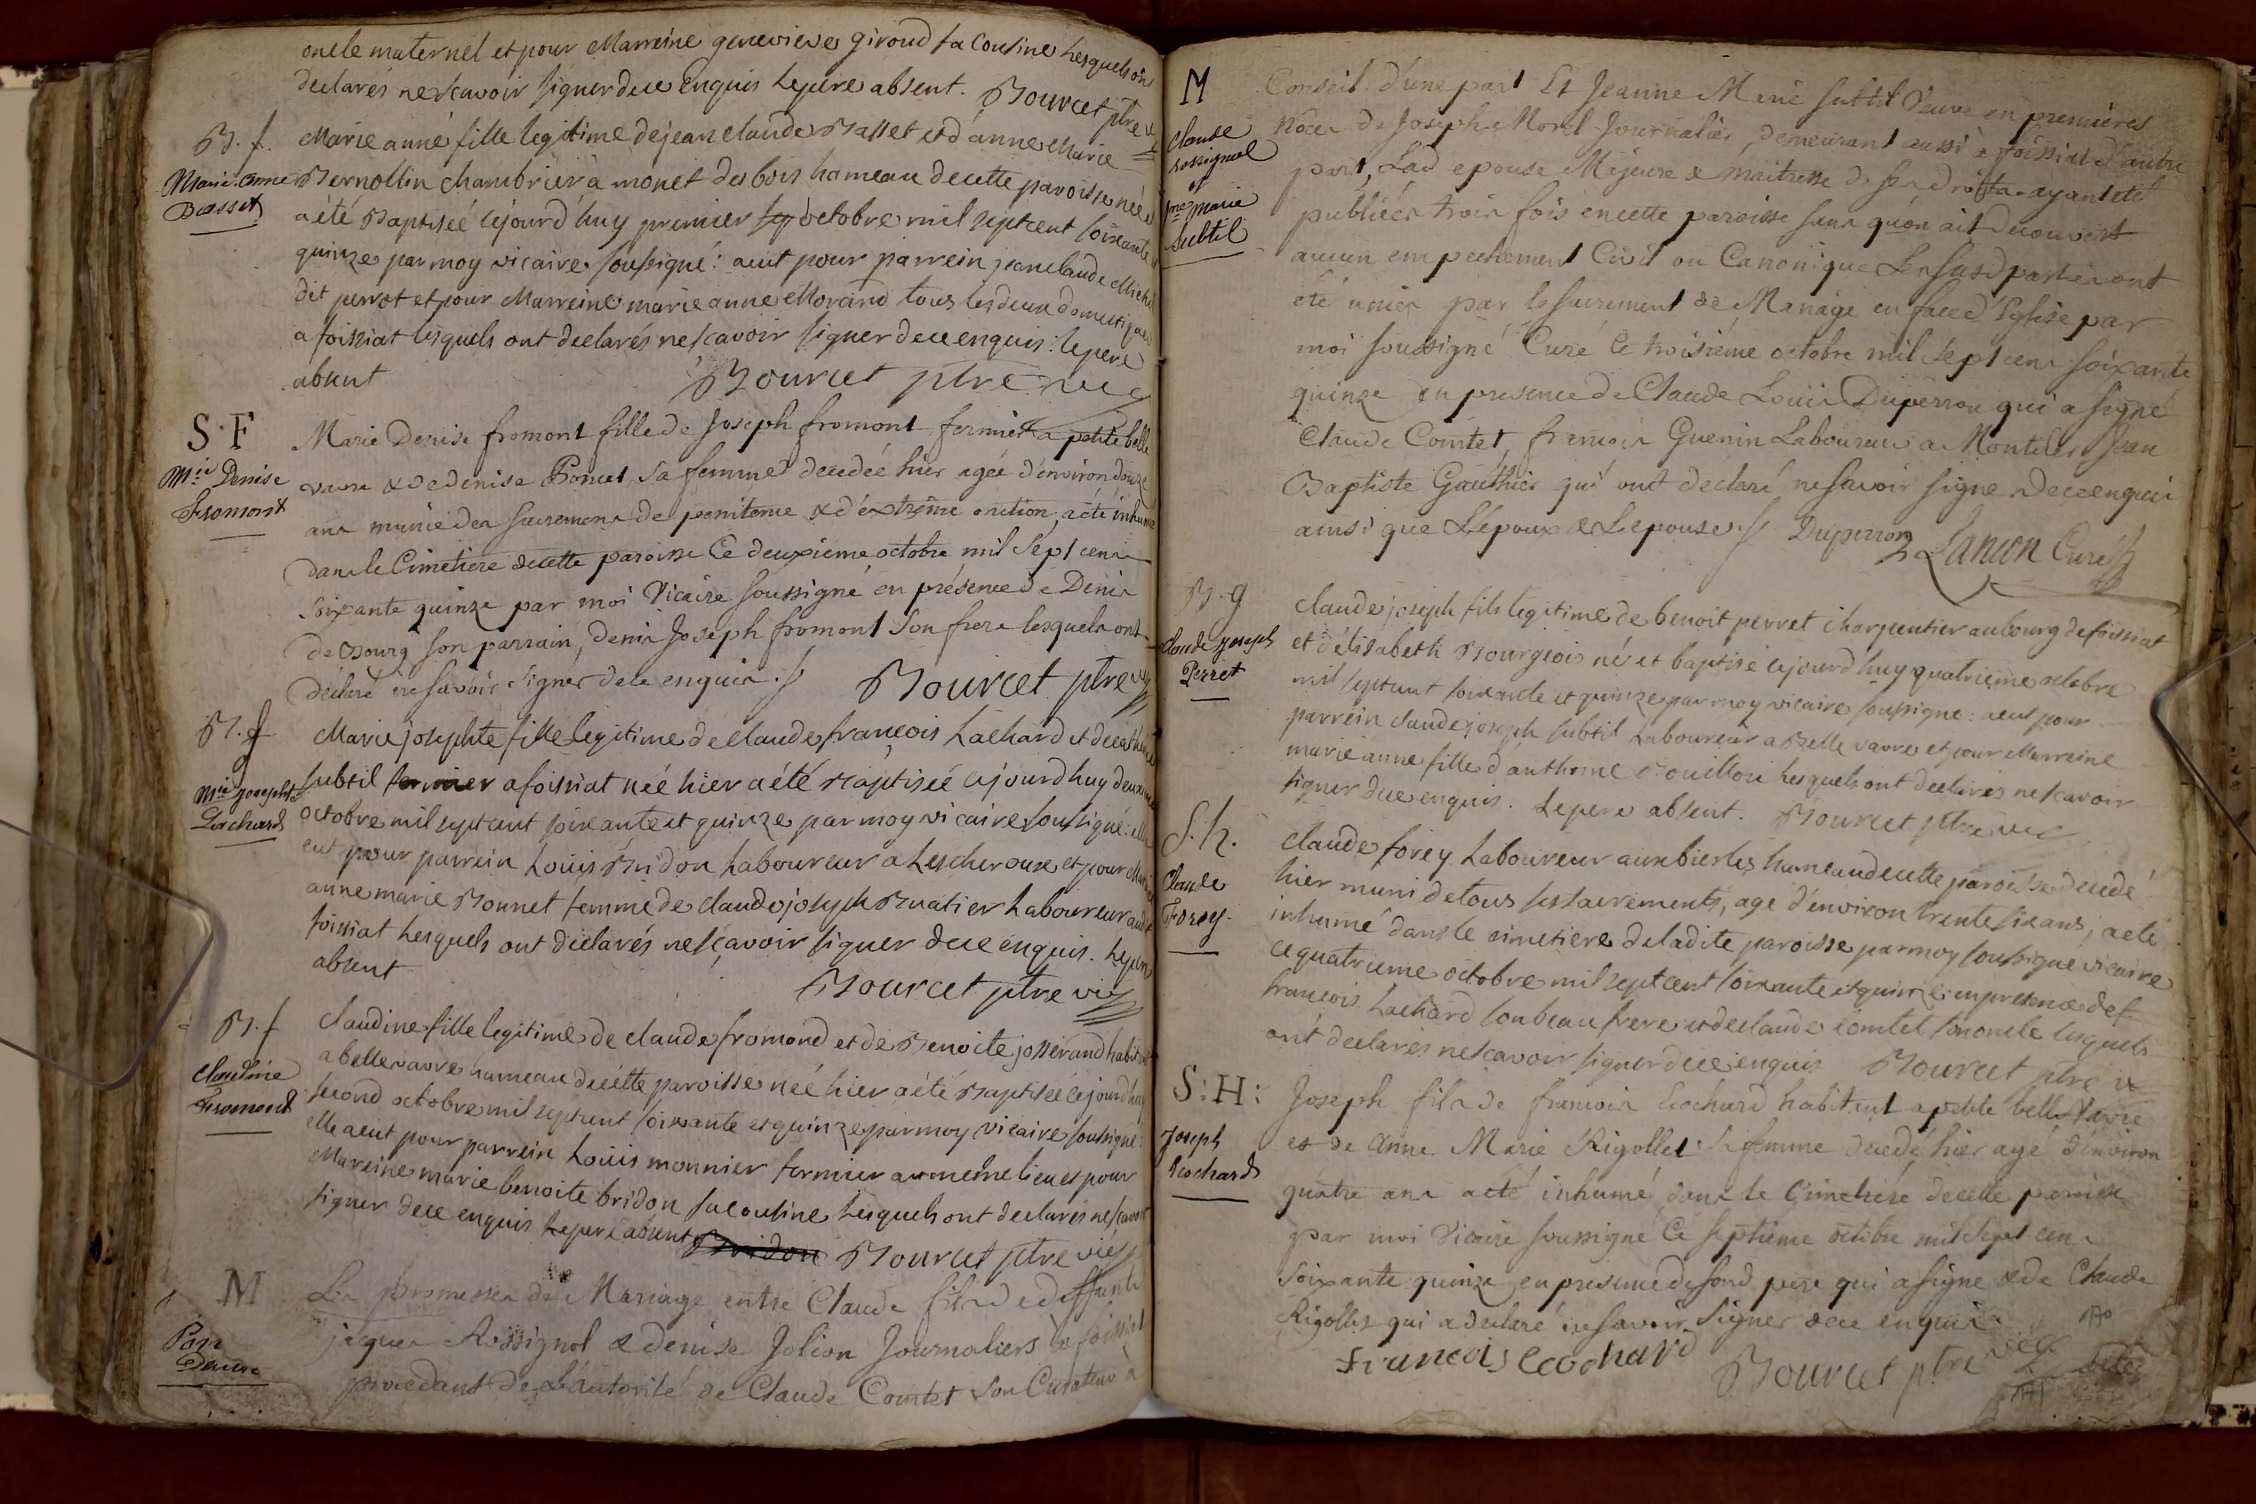 oncle maternel et pour Marreine genevieve giroud sa cousine Lesquels ont
declarés ne scavoir signer de ce enquis Le pere absent. Bourcet ptre
B. f.
Marie anne
Basset
Marie anne fille legitime de jean claude Basset et d'anne Marie
Bernollin chambrier à monet des bois hameau de cette paroisse née
a été Baptiseé cejourd'huy premier octobre mil sept cent soixante
quinze par moy vicaire soussigné: a eut pour parrein jean claude Michel
dit perrot et pour Marreine marie anne Morand tous les deux domestiques
a foissiat lesquels ont declarés ne scavoir signer de ce enquis: le pere
absent Bourcet ptre vic
S. F
Mie Denise
Fromont
Marie Denise fromont fille de Joseph fromont fermier a petite belle
vavre & de denise Poncet sa femme decedeé hier ageé d'environ douze
ans munie des sacremens de penitence & d'extrême onction, a été inhumé
dans le Cimetiere de cette paroisse Ce deuxieme octobre mil Sept cens
soixante quinze par moi Vicaire soussigné en présence de Denis
deBourg son parrain, denis Joseph fromont Son frere lesquels ont
déclaré ne savoir signer de ce enquis. Bourcet ptre vic
B. f
Mie josephte
Lachard
Marie josephte fille legitime de claude françois Lachard et de
subtil fermier a foissiat née hier a été Baptiseé cejourd huy deuxieme
octobre mil sept cent soixante et quinze par moy vicaire soussigné: elle
eut pour parrein Louis Bridon Laboureur a Lescheroux et pour
anne marie Monnet femme de claude joseph Buatier Laboureur
foissiat Lesquels ont déclarés ne sçavoir signer de ce enquis. Le pere
absent Bourcet ptre vic
B. f
Claudine
Fromond
claudine fille legitime de claude fromond et de Benoite josserand habit
a belle vavre hameau de cette paroisse née hier a été Baptisée cejourd'huy
second octobre mil sept cent soixante et quinze par moy vicaire soussigné
elle a eut pour parrein Louis monnier fermier au meme lieu et pour
Mareine marie benoite bridon sa cousine Lesquels ont declarés ne scavoir
signer de ce enquis Le pere absent Bridon Bourcet ptre vic
M
Les promesses de Mariage entre Claude fils de deffunts
jaques Rossignol & denise Jolion Journaliers a foissiat
procedant de L'autorité de Claude Comtet son Curateur
M
Claude
Rossignol
et
jne Marie
Subtil
Conseil d'une part Et Jeanne Marie Subtil Veuve en premieres
nôces de Joseph Morel Journalier, demeurant aussi à foissiat d'autre
part, Lad epouse Majeure & maitresse de ses droits ayant eté
publiées trois fois en cette paroisse sans qu'on ait decouvert
aucun empechement Civil ou Canonique Les susd parties ont
été unies par le sacrement de Mariage en face d'Eglise par
moi soussigné Curé Ce troisieme octobre mil sept cens soixante
quinze en presence de Claude Louis Duperron qui a signé
Claude Comtet, francois Guenin Laboureurs a Jean
Baptiste Gauthier qui ont declaré ne savoir signe de ce enquis
ainsi que L'epoux & L'epouse. Duperron Lancon Curé
B. g
Claude joseph
Perret
claude joseph fils legitime de benoit perret charpentier au bourg de foissiat
et d'elisabeth Bourgeois né et baptisé cejourd huy quatrieme octobre
mil sept cent soixante et quinze par moy vicaire soussigné: a eut pour
parrein claude joseph subtil Laboureur a Belle vavre et pour Marreine
marie anne fille d'anthoine Bouillon Lesquels ont declarés ne scavoir
signer de ce enquis. Le pere absent. Bourcet ptre vic
S. h.
Claude
Forey
claude forey Laboureur aux bierles hameau de cette paroisse decedé
hier muni de tous ses sacrements, agé d'environ trente six ans, a eté
inhumé dans le cimetiere de ladite paroisse par moy soussigné vicaire
ce quatrieme octobre mil sept cent soixante et quinze en presence de
françois Lachard son beau frere et de claude comtet son oncle lesquels
ont declarés ne scavoir signer de ce enquis Bourcet ptre
S: H:
Joseph
Cochard
Joseph fils de francois Cochard habitant a petite belle Vavre
et de Anne Marie Rigollet sa femme decedé hier agé d'environ
quatre ans a eté inhumé dans le Cimetiere de cette paroisse
par moi Vicaire soussigné Ce septieme octobre mil sept cens
soixante quinze en presence de sond pere qui a signé & de Claude
Rigollet qui a declaré ne savoir signer de ce enquis
Francois Cochard Bourcet ptre vic